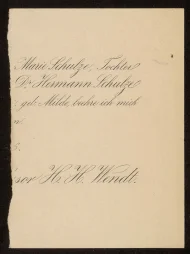 Marie Schulze, Tochter
Dr. Hermann Schulze
geb. Milde, beehre ich mich
sor H. H. Wendt.